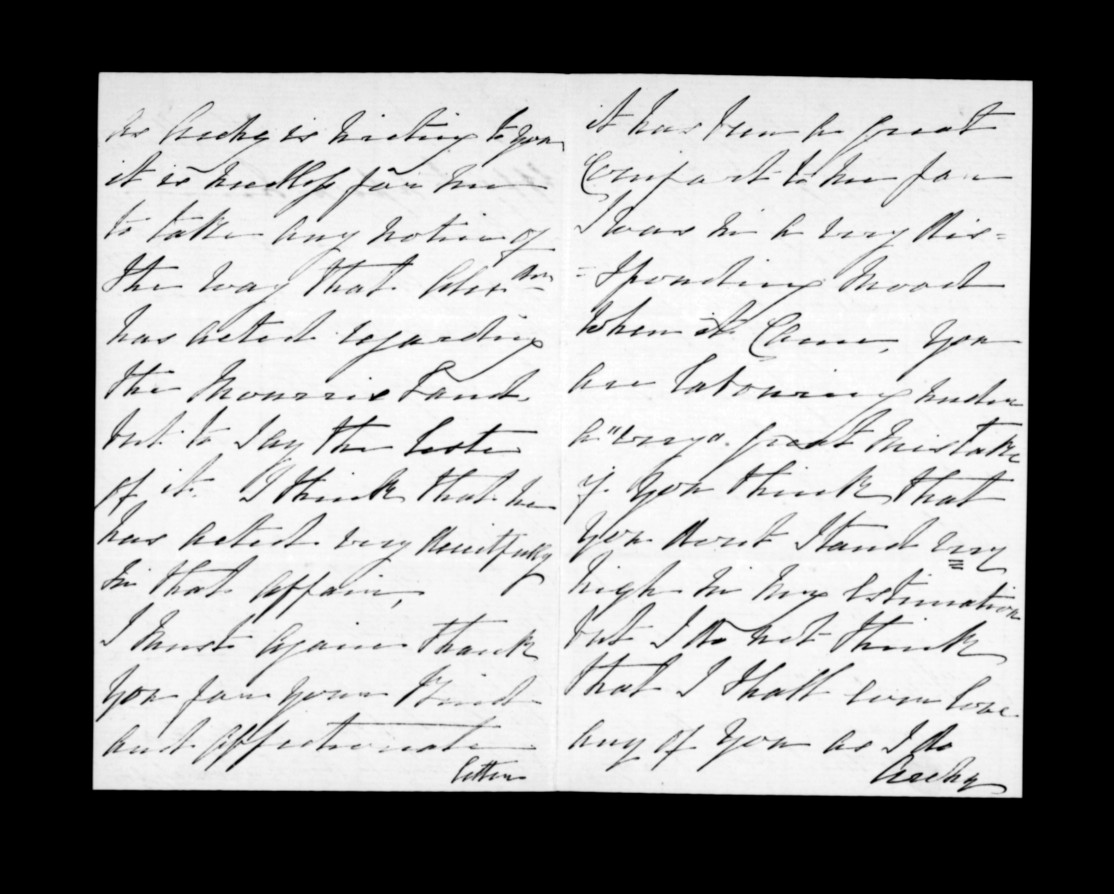 As Archy is writing to you
it is needless for me
to take any notice of
the way that Alexr
has acted regarding
the Land,
but to say the least
of it. I think that he
has acted very deceitfully
in that affair,
I must again thank
you for your kind
and affectionate
letter
it has been a great
Comfort to me for
I was in a very dis=
=sponding mood
when it Came, you
are labouring under
a "very". great mistake
if you think that
you dont stand very
high in my estimation
but I do not think
that I shall ever love
any of you as I do
Archy